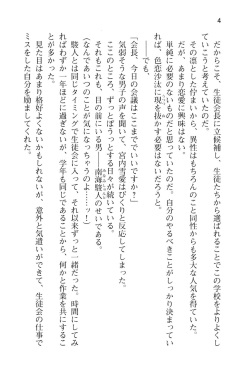 4
だからこそ、生徒会長に立候補し、生徒たちから選ばれることでこの学校をよりよくし
ていこうと考えていたのだ。
その凛とした佇まいから、異性はもちろんのこと同性からも多大な人気を得ていた。
だが、あまり恋愛に興味はない。
単純に必要のないものだと思っていたのだ。自分のやるべきことがしっかり決まってい
れば、色恋沙汰に現を抜かす必要はないだろうと。
――でも。
「会長、今日の会議はここまででいいですか？」
気弱そうな男子の声を聞いて、宮内雪愛はびくりと反応してしまった。
ここのところ、ずっとぼうっとする日々が続いている。
それもこれも、目の前にいる男――南海駿人のせいである。
（なんであいつのことが気になっちゃうのよ……ッ）
駿人とは同じタイミングで生徒会に入って、それ以来ずっと一緒だった。時間にしてみ
ればわずか一年ほどに過ぎないが、学年も同じであることから、何かと作業を共にするこ
とが多かった。
見た目はあまり格好よくないかもしれないが、意外と気遣いができて、生徒会の仕事で
ミスをした自分を励ましてくれた。